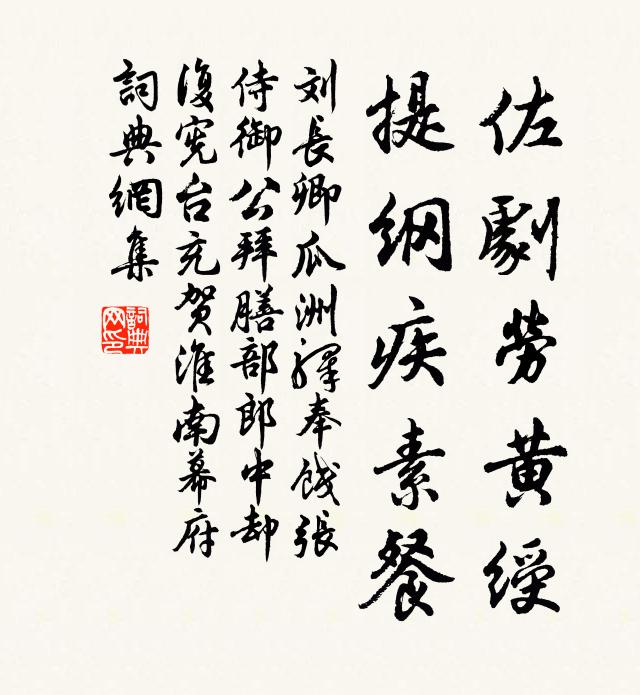 佐劇勞黄綬
提纲疾素餐
刘長卿瓜洲驛奉餞張
侍御公拜膳部郎中却
復宪台充贺淮南幕府
詞典網集
詞典
网印